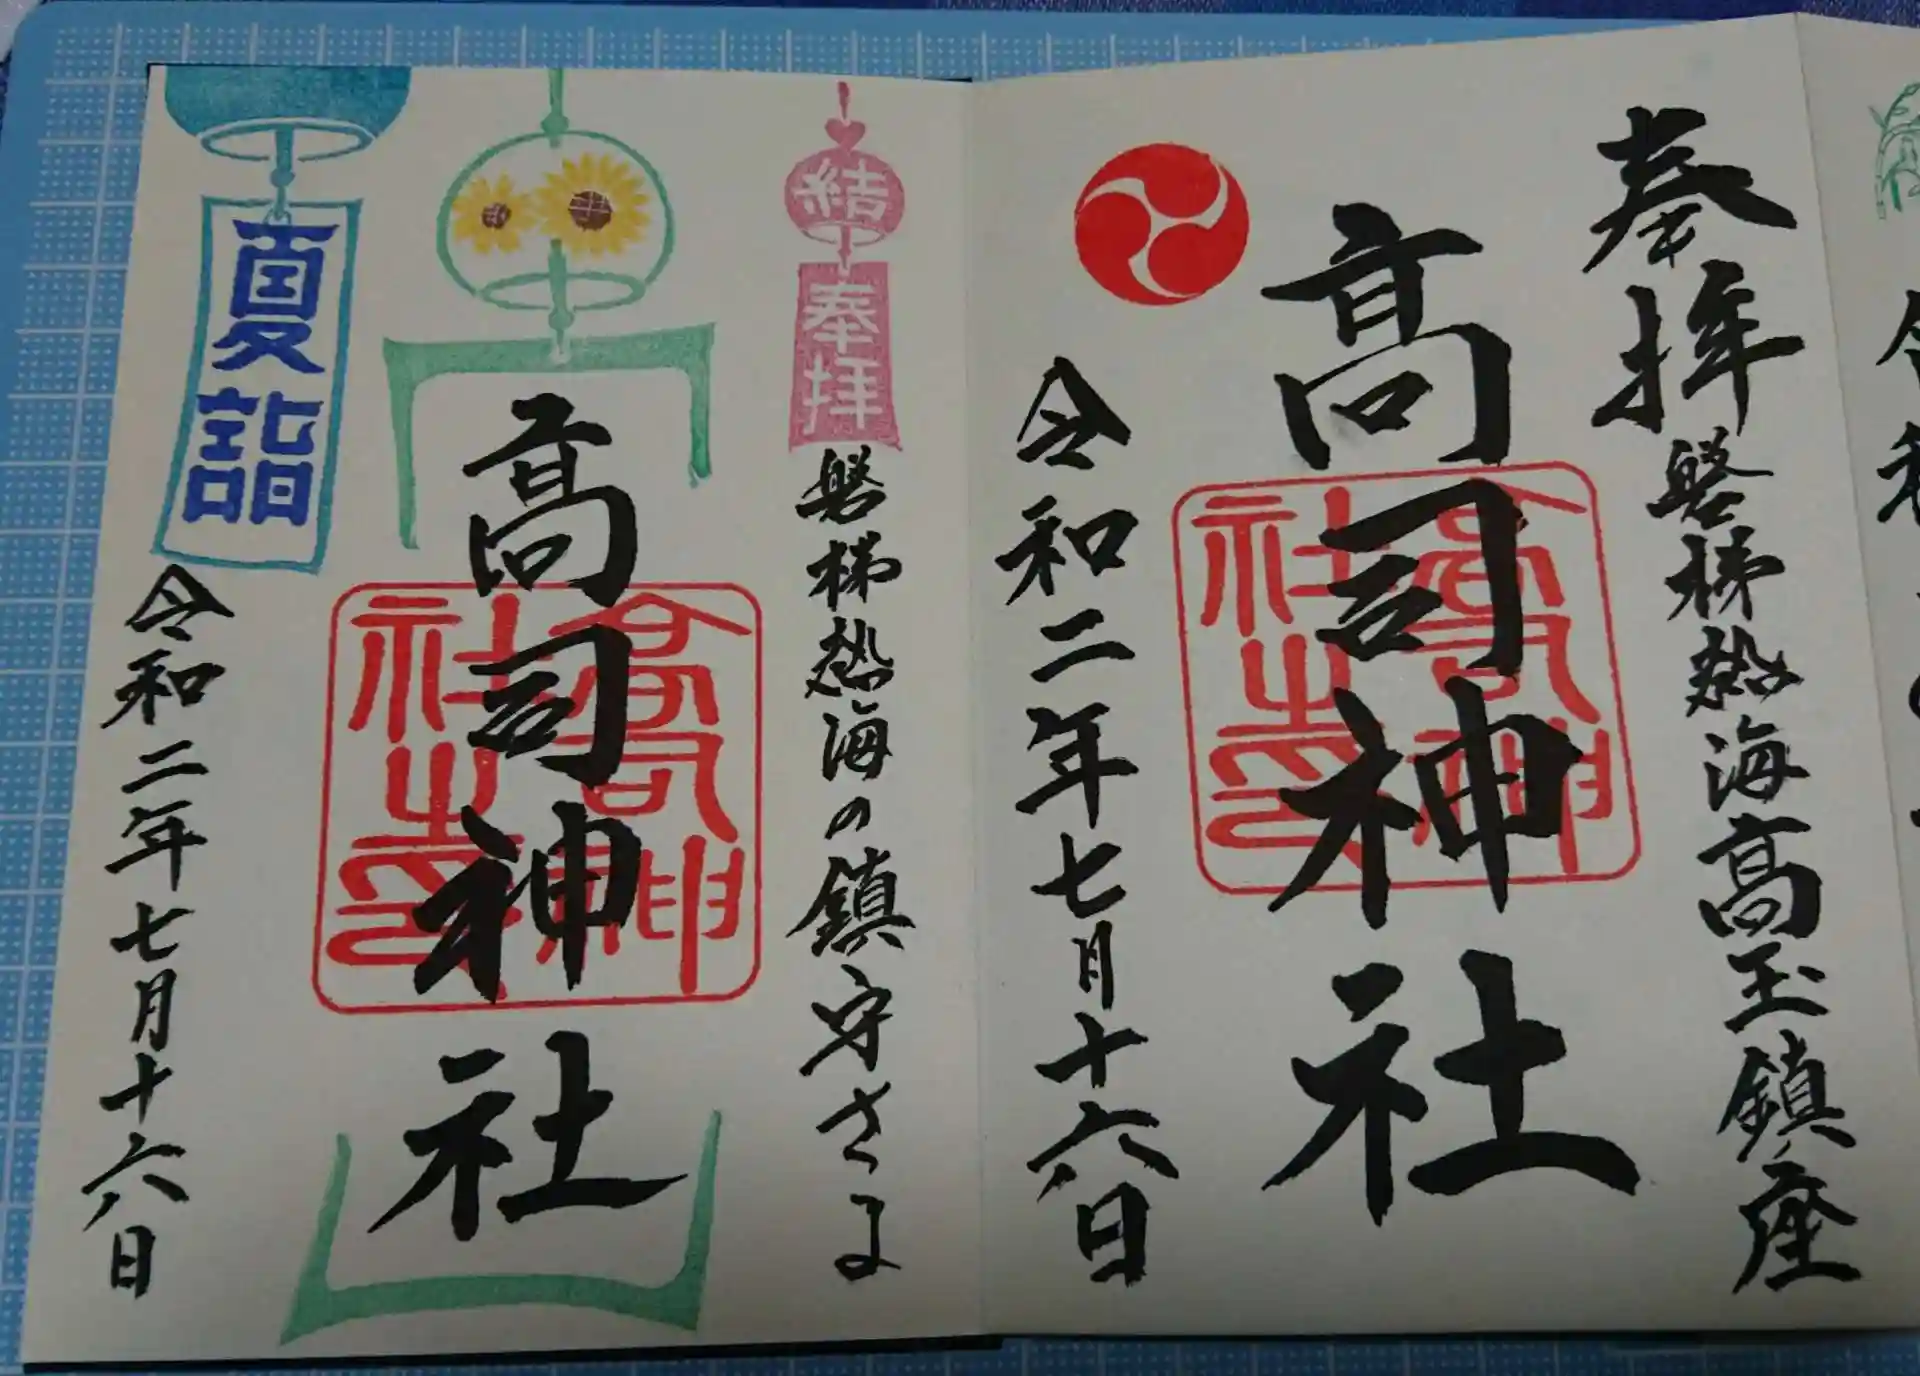 奉拝
磐梯熱海高玉鎮座
高司神社
高司神社之印
令和二年七月十六日
結
奉拝
磐梯熱海の鎮守さま
高司神社
高司神社之印
夏詣
令和二年七月十六日